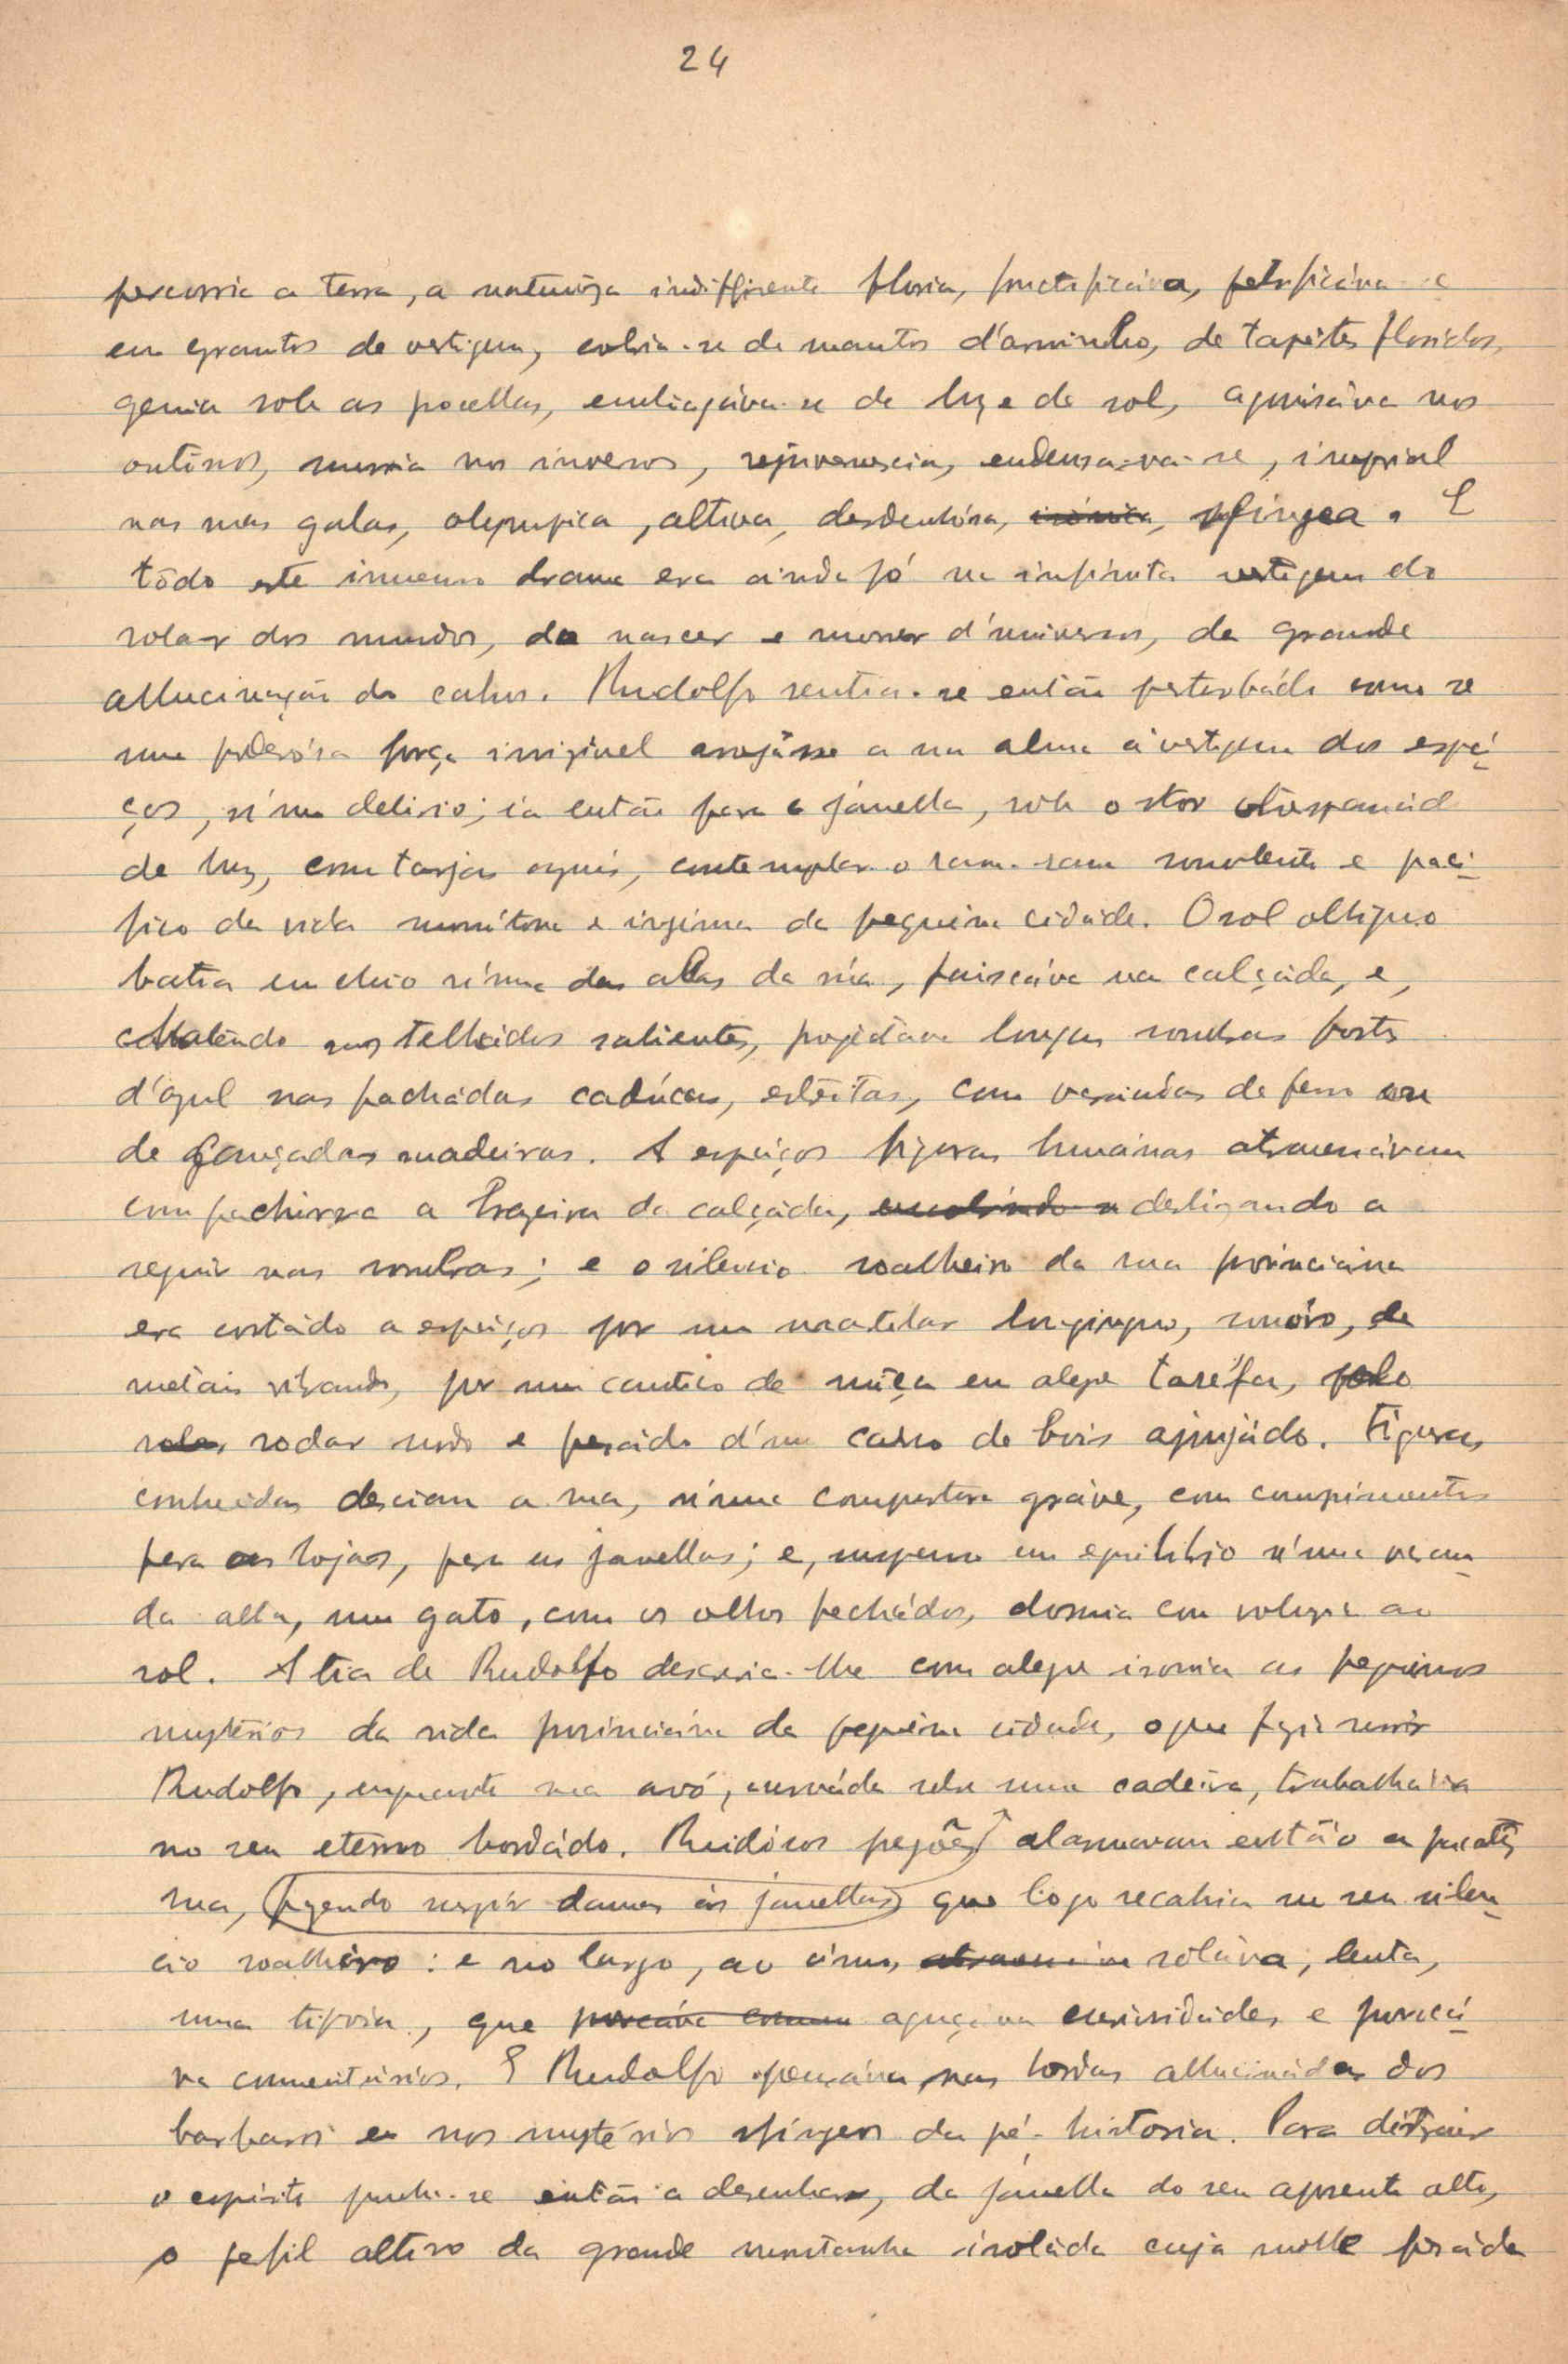 24
percorria a terra, a naturêza indifferente floria, fructificáva, petrificáva-se
em espantos de vertigem, cobria-se de mantos d'arminho, de tapêtes floridos,
gemia sob as procellas, embriagáva-se de luz e de sol, agonisáva nos
outônos, morria nos invernos, rejuvenescia, endeusava-se, imperial
nas suas galas, olympica, altiva, desdenhósa, irónica, sfíngea. E
tôdo este immenso drama era ainda pó na infinita vertigem do
rolar dos mundos, do nascer e morrer d'universos, da grande
allucinação do cahos. Rudolfo sentia-se então perturbádo como se
uma poderósa força invizivel arrojásse a sua alma á vertigem dos espá-
ços, n'um delirio; ia então para a janella, sob o stor
de luz, com tarjas azues, contemplar o ram-ram somolento e paci-
fico da vida monótona e infima da pequena cidáde. O sol obliquo
batia em cheio n'uma das alas da rúa, faiscáva na calçáda, e,
batendo nos telhádos salientes, projectava longas sombras fortes
d'azul nas fachádas cadúcas, estreitas, com varándas de ferro ou
de madeiras. A espáços figuras humánas atravessávam
com pachorra a lrageira da calçáda, deslizando a
seguir nas sombras; e o silencio soalheiro da rua provinciána
era cortádo a espáços por um martelar longinquo, sonóro, de
metais vibrando, por um cantico de môça em alegre taréfa, pelo
rodar surdo e pesádo d'um carro de bois ajoujádo. Figuras
conhecidas desciam a rua, n'uma compostura gráve, com comprimentos
para as lojas, para as janellas; e, suspenso em equilibrio n'uma varan-
da alta, um gato, com os olhos fechádos, dormia com volupia ao
sol. A tia de Rudolfo descrevia-lhe com alegre ironia os pequenos
mystérios da vida provinciána da pequena cidade, o que fazia sorrir
Rudolfo, emquanto sua avó, curváda sobre uma cadeira, trabalhava
no seu eterno bordádo. Ruidósos pregões alarmavam então a pacáta
rua, fazendo surgir damas ás janellas que logo recahia no seu silen-
cio soalheiro: e no largo, ao cimo, roláva, lenta,
uma tipoia, que aguçáva curiosidades e provocá-
va commentários. E Rudolfo pensáva nas hordas allucinádas dos
barbaros e nos mystérios sfíngeos da pré-historia. Para distrair
o espirito punha-se então a desenhar, da janella do seu aposento alto,
o perfil altivo da grande montanha isoláda cuja molle pesáda